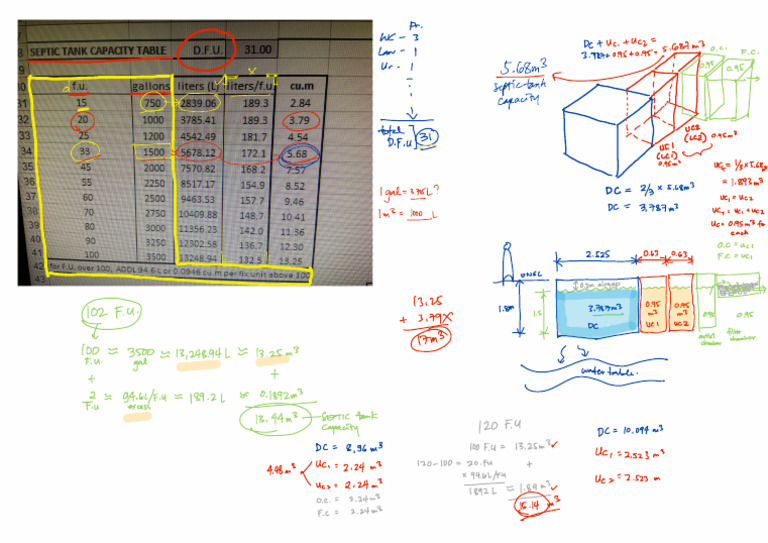 SEPTIC TANK CAPACITY TABLE D.F.U. 31.00
f.u. gallons liters (L) liters/f.u. cu.m
15 750 2839.06 189.3 2.84
20 1000 3785.41 189.3 3.79
25 1200 4542.49 181.7 4.54
33 1500 5678.12 172.1 5.68
45 2000 7570.82 168.2 7.57
55 2250 8517.17 154.9 8.52
60 2500 9463.53 157.7 9.46
70 2750 10409.88 148.7 10.41
80 3000 11356.23 142.0 11.36
90 3250 12302.58 136.7 12.30
100 3500 13248.94 132.5 13.25
for F.U. over 100, ADDL 94.6 L or 0.0946 cu.m per fix unit above 100
31
32
33
34
35
36
37
38
39
40
41
42
WC - 3
Lav - 1
Ur. 1
total
D.F.U 31
1 gal = 3.785 L?
1 m³ = 1000 L
5.68m³
septic tank
capacity
DC + UC1 + UC2 =
3.789 + 0.95 + 0.95 = 5.687m³
O.C. F.C.
0.95 0.95
UC1
(LC1)
0.95m³
UC2
(LC2)
0.95m³
DC = 2/3 x 5.68m³
DC = 3.787m³
= 1.893m³
UC1 = UC2
UCT = UC1 + UC2
UC = 0.95m³ for
each
O.C = UC1
F.C = UC1
2.525 0.63 0.63
1.8m
1.5
0.3m airgap
3.787m³
DC
0.95
m³
UC1
0.95
m³
UC2
0.95
0.95
outlet
chamber
filter
chamber
water table.
102 F.U.
100 F.U. ≈ 3500 gal ≈ 13,248.94 L ≈ 13.25 m³
+ +
2 F.U ≈ 94.6L/F.U excess ≈ 189.2 L ≈ 0.1892m³
13.44m³ SEPTIC tank
capacity
13.25
+ 3.79
17m³
DC = 8.96 m³
4.48 m³
UC1 = 2.24 m³
UC2 = 2.24 m³
O.C. = 2.24 m³
F.C = 2.24 m³
120 F.U
100 F.U = 13.25m³
120-100 = 20 FU +
x 94.6 L/FU
1892 L ≈ 1.89 m³
15.14 m³
DC = 10.094 m³
UC1 = 2.523 m³
UC2 = 2.523 m